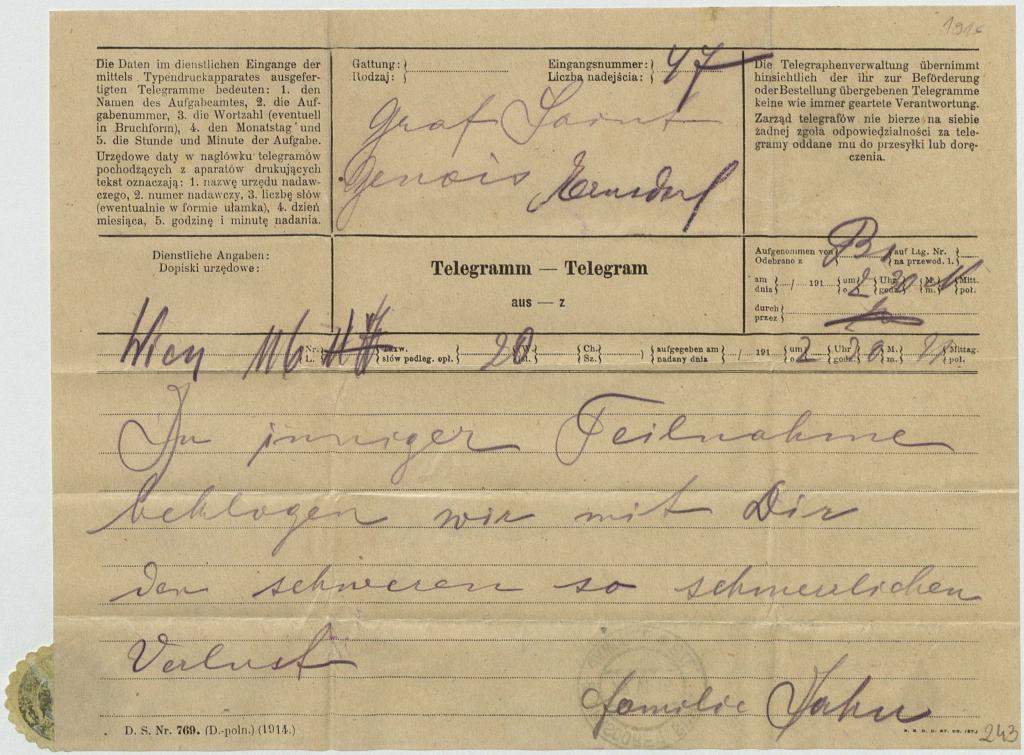 1916
Die Daten im dienstlichen Eingange der
mittels Typendruckapparates ausgefer-
tigten Telegramme bedeuten: 1. den
Namen des Aufgabeamtes, 2. die Auf-
gabenummer, 3. die Wortzahl (eventuell
in Bruchform), 4. den Monatstag und
5. die Stunde und Minute der Aufgabe.
Urzędowe daty w nagłówku telegramów
pochodzących z aparatów drukujących
tekst oznaczają: 1. nazwę urzędu nadaw-
czego, 2. numer nadawczy, 3. liczbę słów
(ewentualnie w formie ułamka), 4. dzień
miesiąca, 5. godzinę i minutę nadania.
Gattung:
Rodzaj:
Eingangsnummer: 47
Liczba nadejścia:
Graf Saint
Genois Ernsdorf
Die Telegraphenverwaltung übernimmt
hinsichtlich der ihr zur Beförderung
oder Bestellung übergebenen Telegramme
keine wie immer geartete Verantwortung.
Zarząd telegrafów nie bierze na siebie
żadnej zgoła odpowiedzialności za tele-
gramy oddane mu do przesyłki lub dorę-
czenia.
Dienstliche Angaben:
Dopiski urzędowe:
Telegramm — Telegram
aus — z
Aufgenommen von auf Ltg. Nr.
Odebrano z na przewod. l.
am / 191 um 2 Uhr 30 M. Mitt.
dnia o godz. m. poł.
durch
przez
Wien 116 Nr. Taxw. 20 W. Ch. aufgegeben am / 191 um 2 Uhr 20 M. Mittag.
L. słów podleg. opł. Sz. nadany dnia o godz. m. poł.
In inniger Teilnahme
beklagen wir mit Dir
den schweren so schmerzlichen
Verlust
Familie Jahn
D. S. Nr. 769. (D.-poln.) (1914.)
243